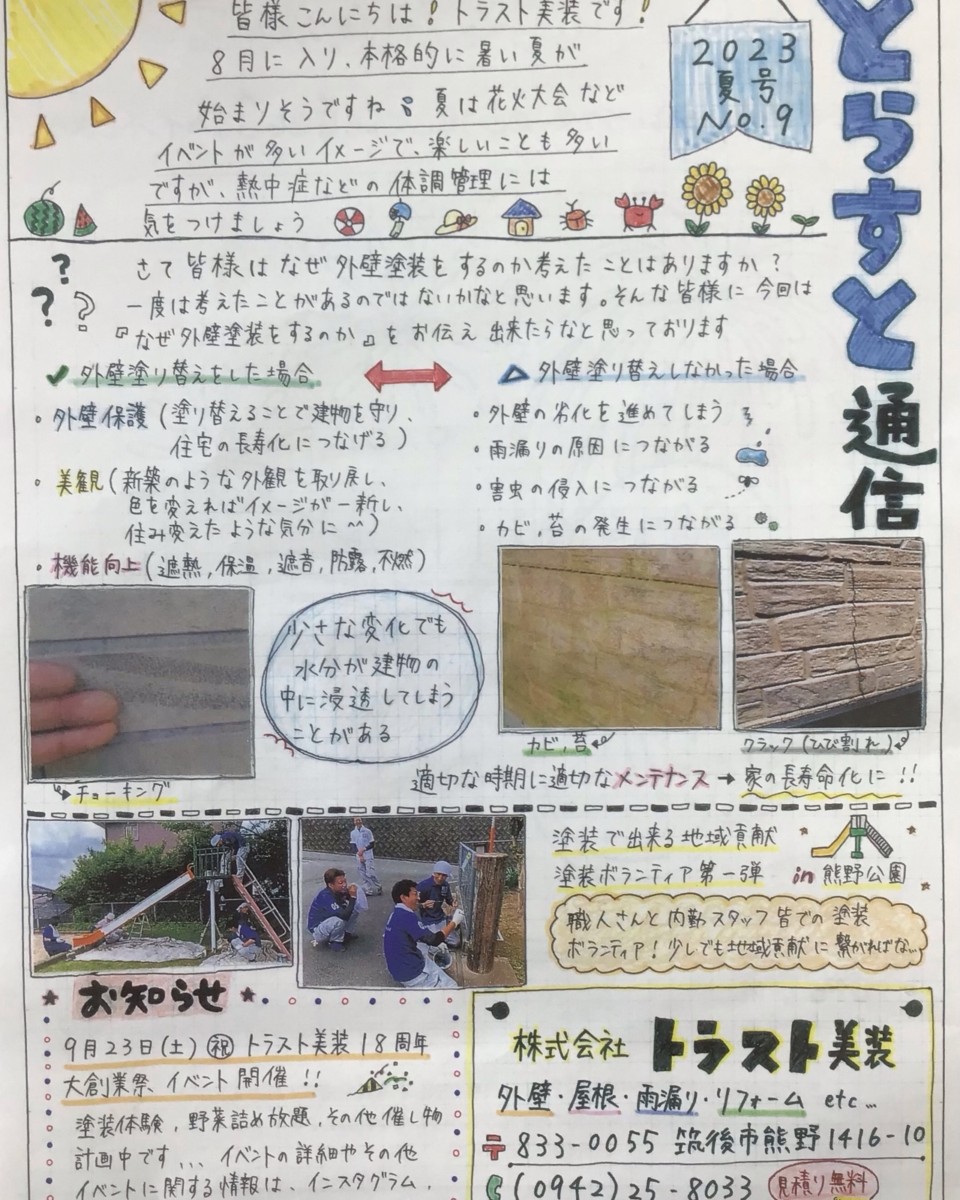 とらすと通信
2023
夏号
No.9
皆様こんにちは!トラスト美装です!
8月に入り、本格的に暑い夏が
始まりそうですね 夏は花火大会など
イベントが多いイメージで、楽しいことも多い
ですが、熱中症などの体調管理には
気をつけましょう
さて皆様はなぜ外壁塗装をするのか考えたことはありますか?
一度は考えたことがあるのではないかなと思います。そんな皆様に今回は
『なぜ外壁塗装をするのか』をお伝え出来たらなと思っております
✓外壁塗り替えをした場合
・外壁保護(塗り替えることで建物を守り、
住宅の長寿化につなげる)
・美観(新築のような外観を取り戻し、
色を変えればイメージが一新し、
住み変えたような気分に^^)
・機能向上(遮熱,保温,遮音,防露,不燃)
△外壁塗り替えしなかった場合
・外壁の劣化を進めてしまう
・雨漏りの原因につながる
・害虫の侵入につながる
・カビ,苔の発生につながる
チョーキング
少さな変化でも
水分が建物の
中に浸透してしまう
ことがある
カビ,苔
クラック(ひび割れ)
適切な時期に適切なメンテナンス→家の長寿命化に!!
塗装で出来る地域貢献
塗装ボランティア第一弾 in 熊野公園
職人さんと内勤スタッフ皆での塗装
ボランティア!少しでも地域貢献に繋がればな...
お知らせ
9月23日(土)㊗トラスト美装18周年
大創業祭、イベント開催!!
塗装体験,野菜詰め放題,その他催し物
計画中です... イベントの詳細やその他
イベントに関する情報は、インスタグラム,
株式会社 トラスト美装
外壁・屋根・雨漏り・リフォーム etc...
〒833-0055 筑後市熊野1416-10
(0942)25-8033 見積り無料